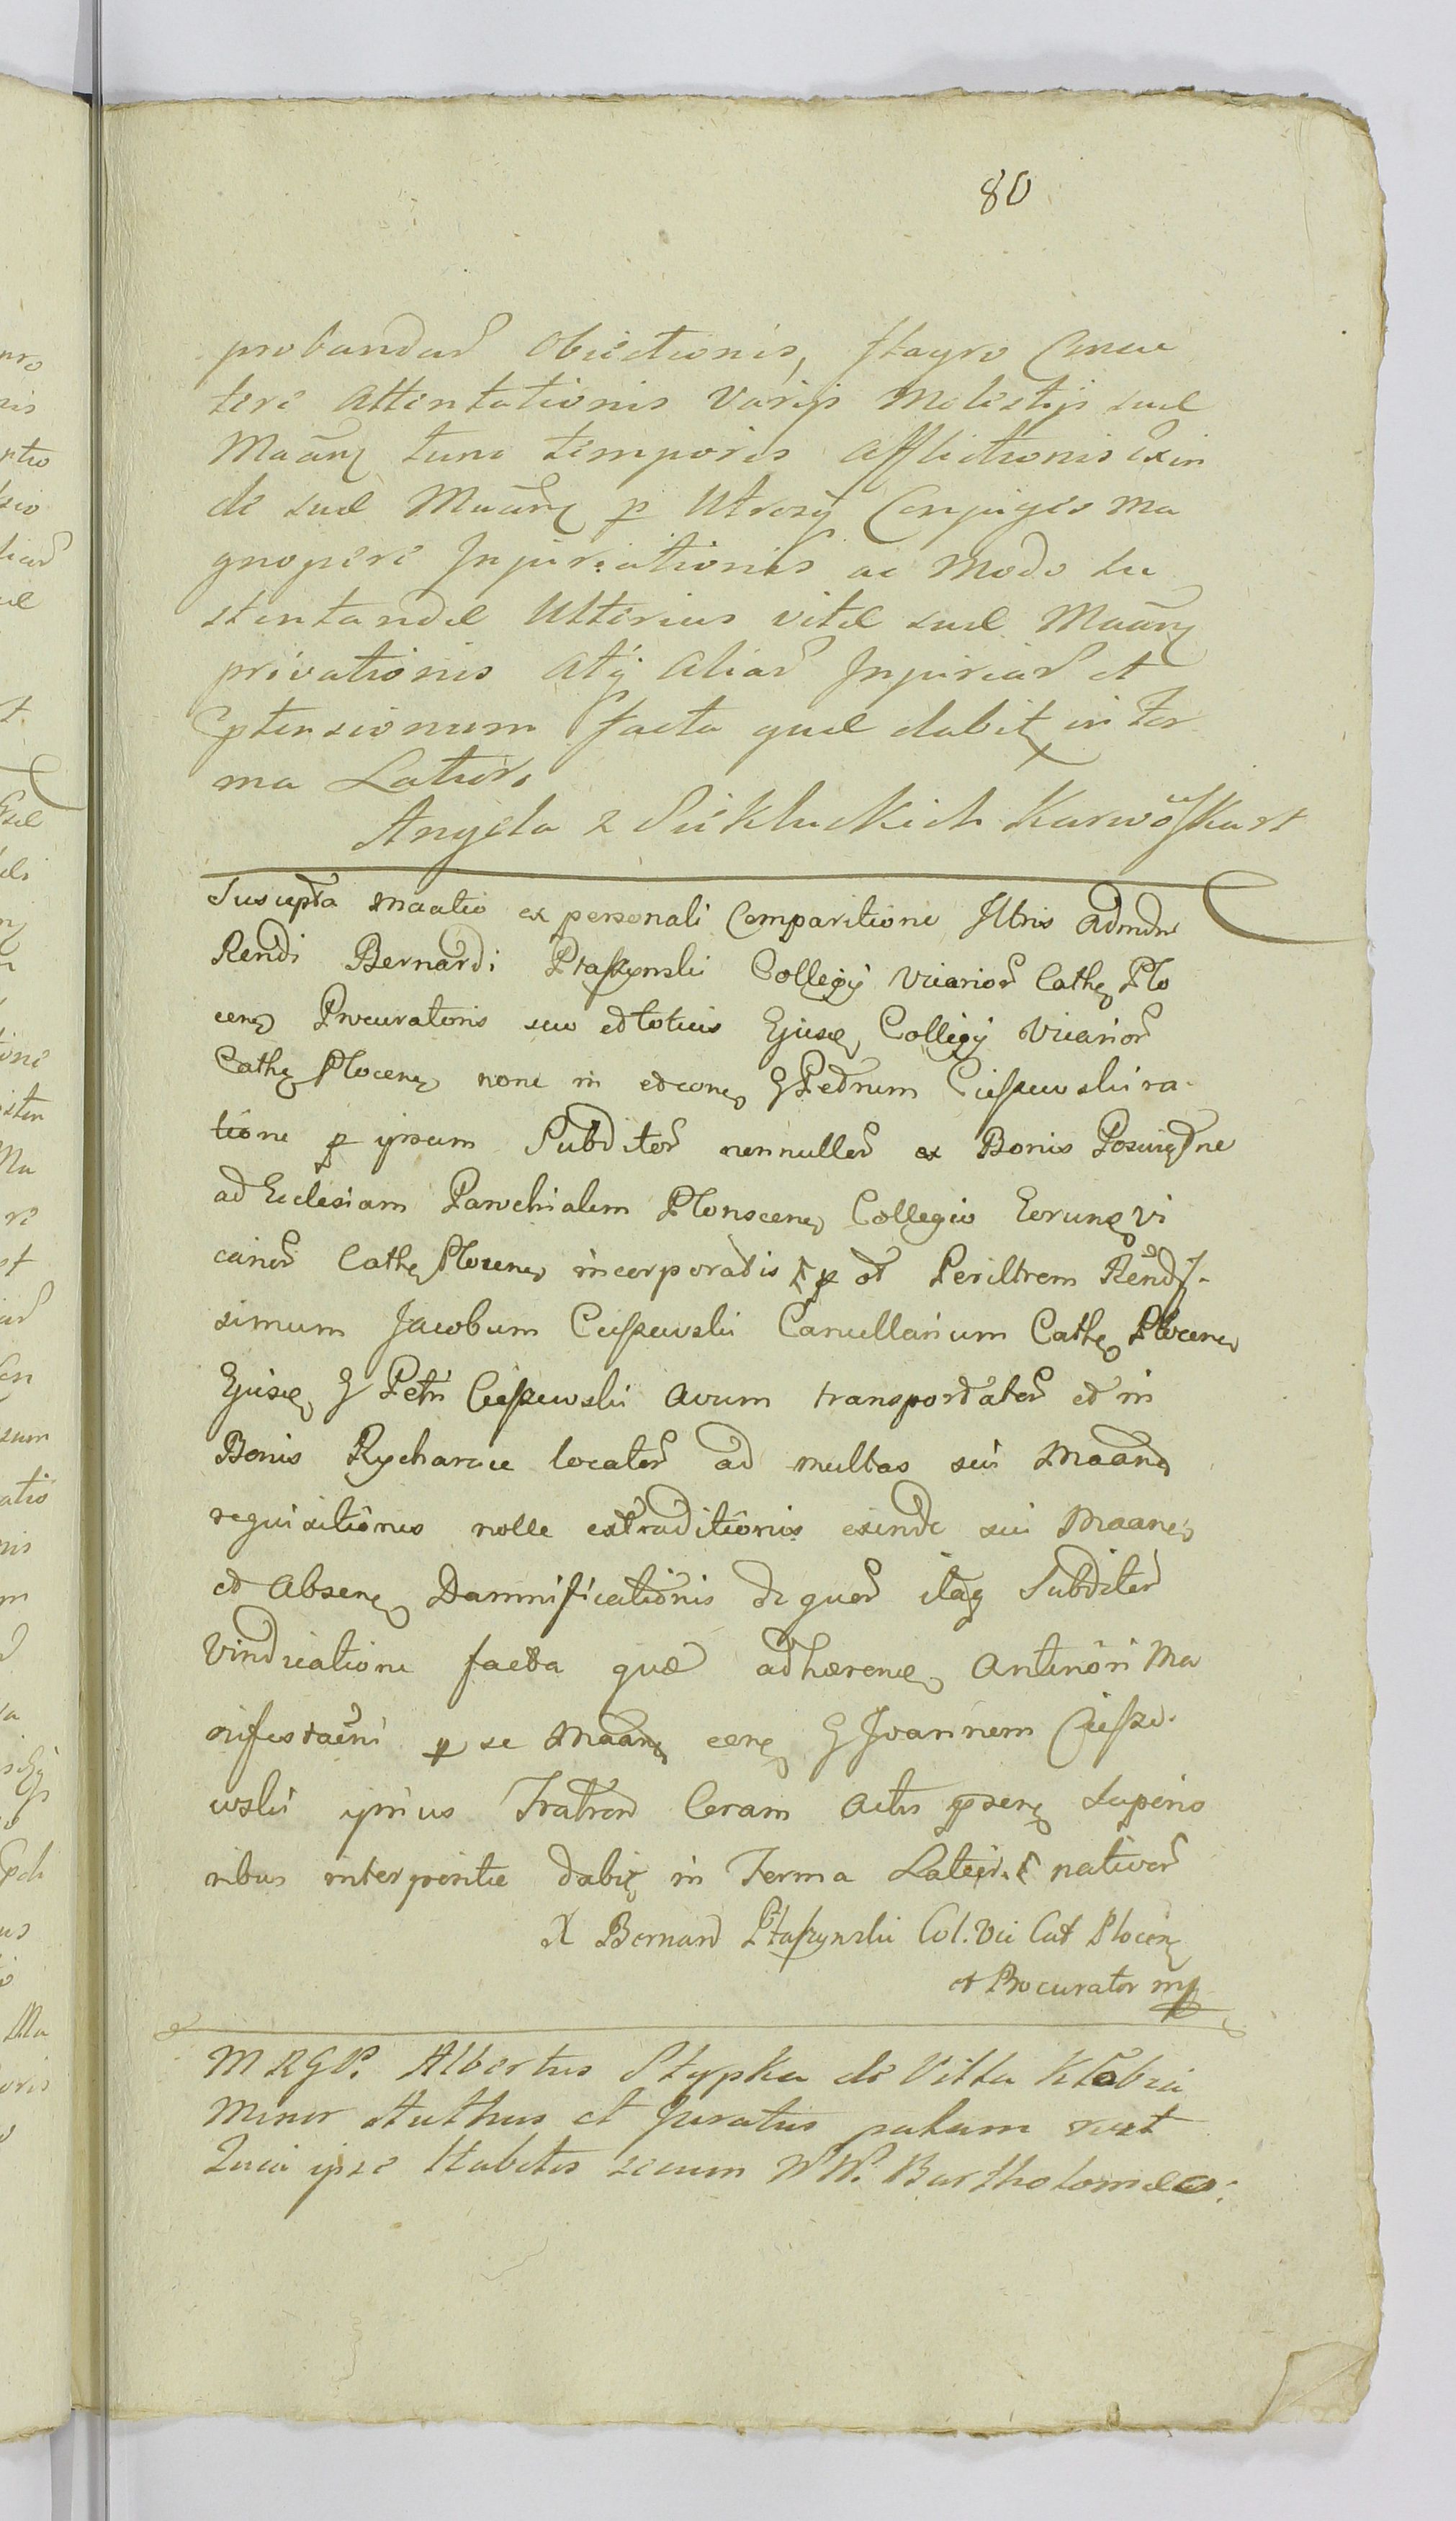 80
probandar obiectionis, Itaqve
tere Attentationis Varys Molestys suæ
Maãnẽ tunc temporis Afflictionis exin
de suæ Maãnẽ p Utrosq Conjuges ma
gnopere Injuriationis ac Modo su
stentandæ Ulterius vitæ suæ Maãnẽ
privationis Atq Aliar Injuriar et
Ptensionum facta quæ dabit in For
ma Latiori
Angela z Siekluckich Karwoska st
Suscepta Maatio ex personali Comparitione Illris Admdu
Rendi Bernardi Ptaszynski Collegy Vicarior Cathe Plo
cens Procuratoris suo et totius Ejusd Collegy Vicarior
Cathe Plocens nomine in et cone G Petrum Cieszewski ra-
tione p ipsum Subditor nonnullor ex Bonis Poswiętne
ad Ecclesiam Parochialem Plonscens Collegio Eorund Vi
carior Cathe Plocens incorporatis p et Perillrem Rendis-
simum Jacobum Cieszewski Cancellarium Cathe Plocens
Ejusd G Petri Cieszewski Avum transportator et in
Bonis Rycharcice locator ad multas sui Maans
requisitiones nolle extraditionis exinde sui Maans
et Absens Damnificationis de quor itaq Subditor
Vindicatione facta quæ adhærens Anteriori Ma
nifestaõni p se Maans cone G Joannem Ciesze-
wski ipsius Fratrem Coram Actis psens Superio
ribus interpositæ dabit in Forma Latiori nativor
X Bernard Ptaszynski Col. Vic Cat Plocens
et Procurator mp
MRGP. Albertus Stypka de Villa Kłobia
Minor Authus et Juratus palam rect
Quia ipse Habitis secum NN. Bartholomeo: